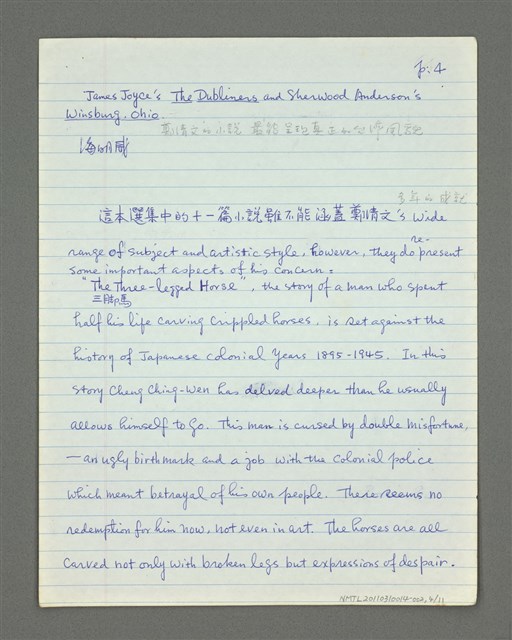 p. 4
James Joyce's The Dubliners and Sherwood Anderson's
Winsburg, Ohio.
鄭清文的小說 最能呈現真正的台灣風貌
海明威
多年的成就
這本選集中的十一篇小說雖不能涵蓋鄭清文's wide
range of subject and artistic style, however, they do re-present
some important aspects of his concern.
"The Three-legged Horse", the story of a man who spent
三腳馬
half his life carving crippled horses, is set against the
history of Japanese colonial Years 1895-1945. In this
story Cheng Ching-Wen has delved deeper than he usually
allows himself to go. This man is cursed by double misfortune,
—an ugly birthmark and a job with the colonial police
which meant betrayal of his own people. There seems no
redemption for him now, not even in art. The horses are all
carved not only with broken legs but expressions of despair.
NMTL20110310014-002, 4/11